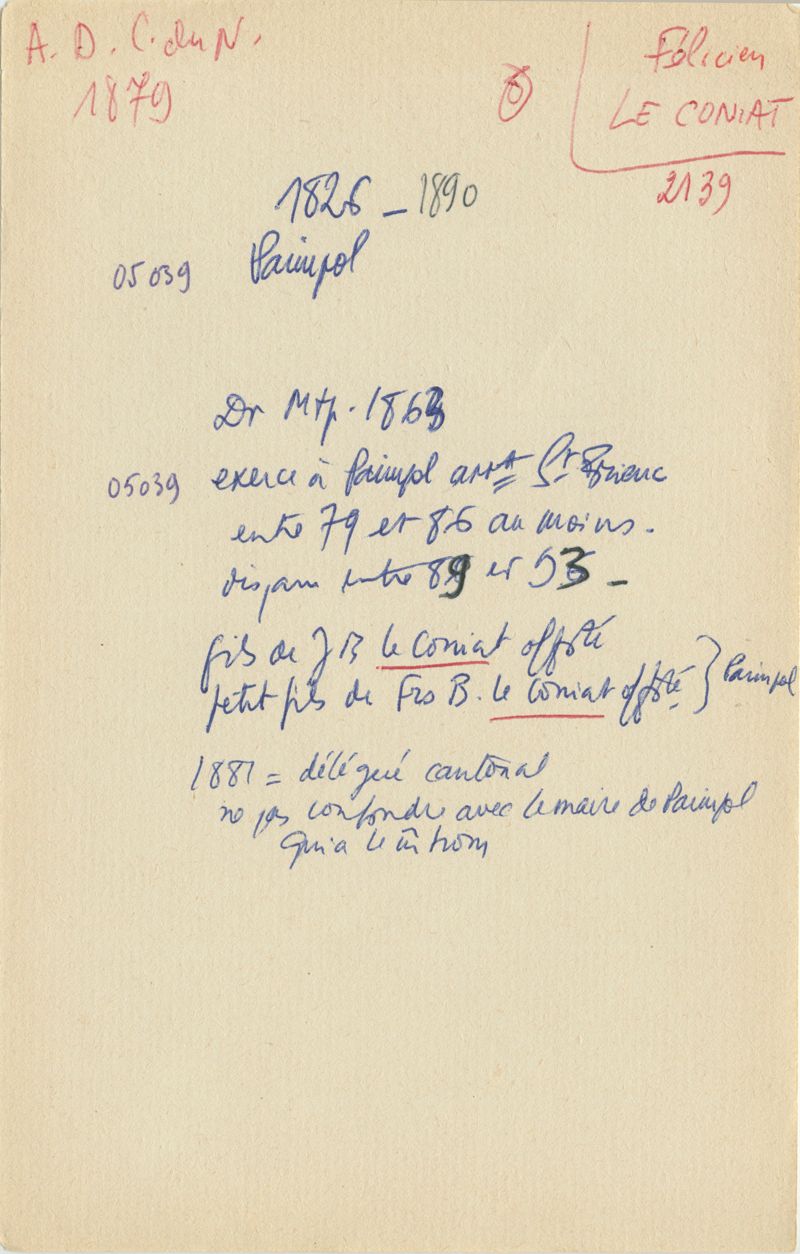 A. D. C. du N.
1879
6
Félicien
LE CONIAT
2139
1826 - 1890
05039 Paimpol
Dr Mtp. 1863
05039 exerce à Paimpol arrt St Brieuc
entre 79 et 86 au moins.
dispam entre 89 et 93 -
fils de J B Le Coniat offsté
petit fils de Frs B. Le Coniat offsté } Paimpol
1881 = délégué cantonal
ne pas confondre avec le maire de Paimpol
qui a le m nom